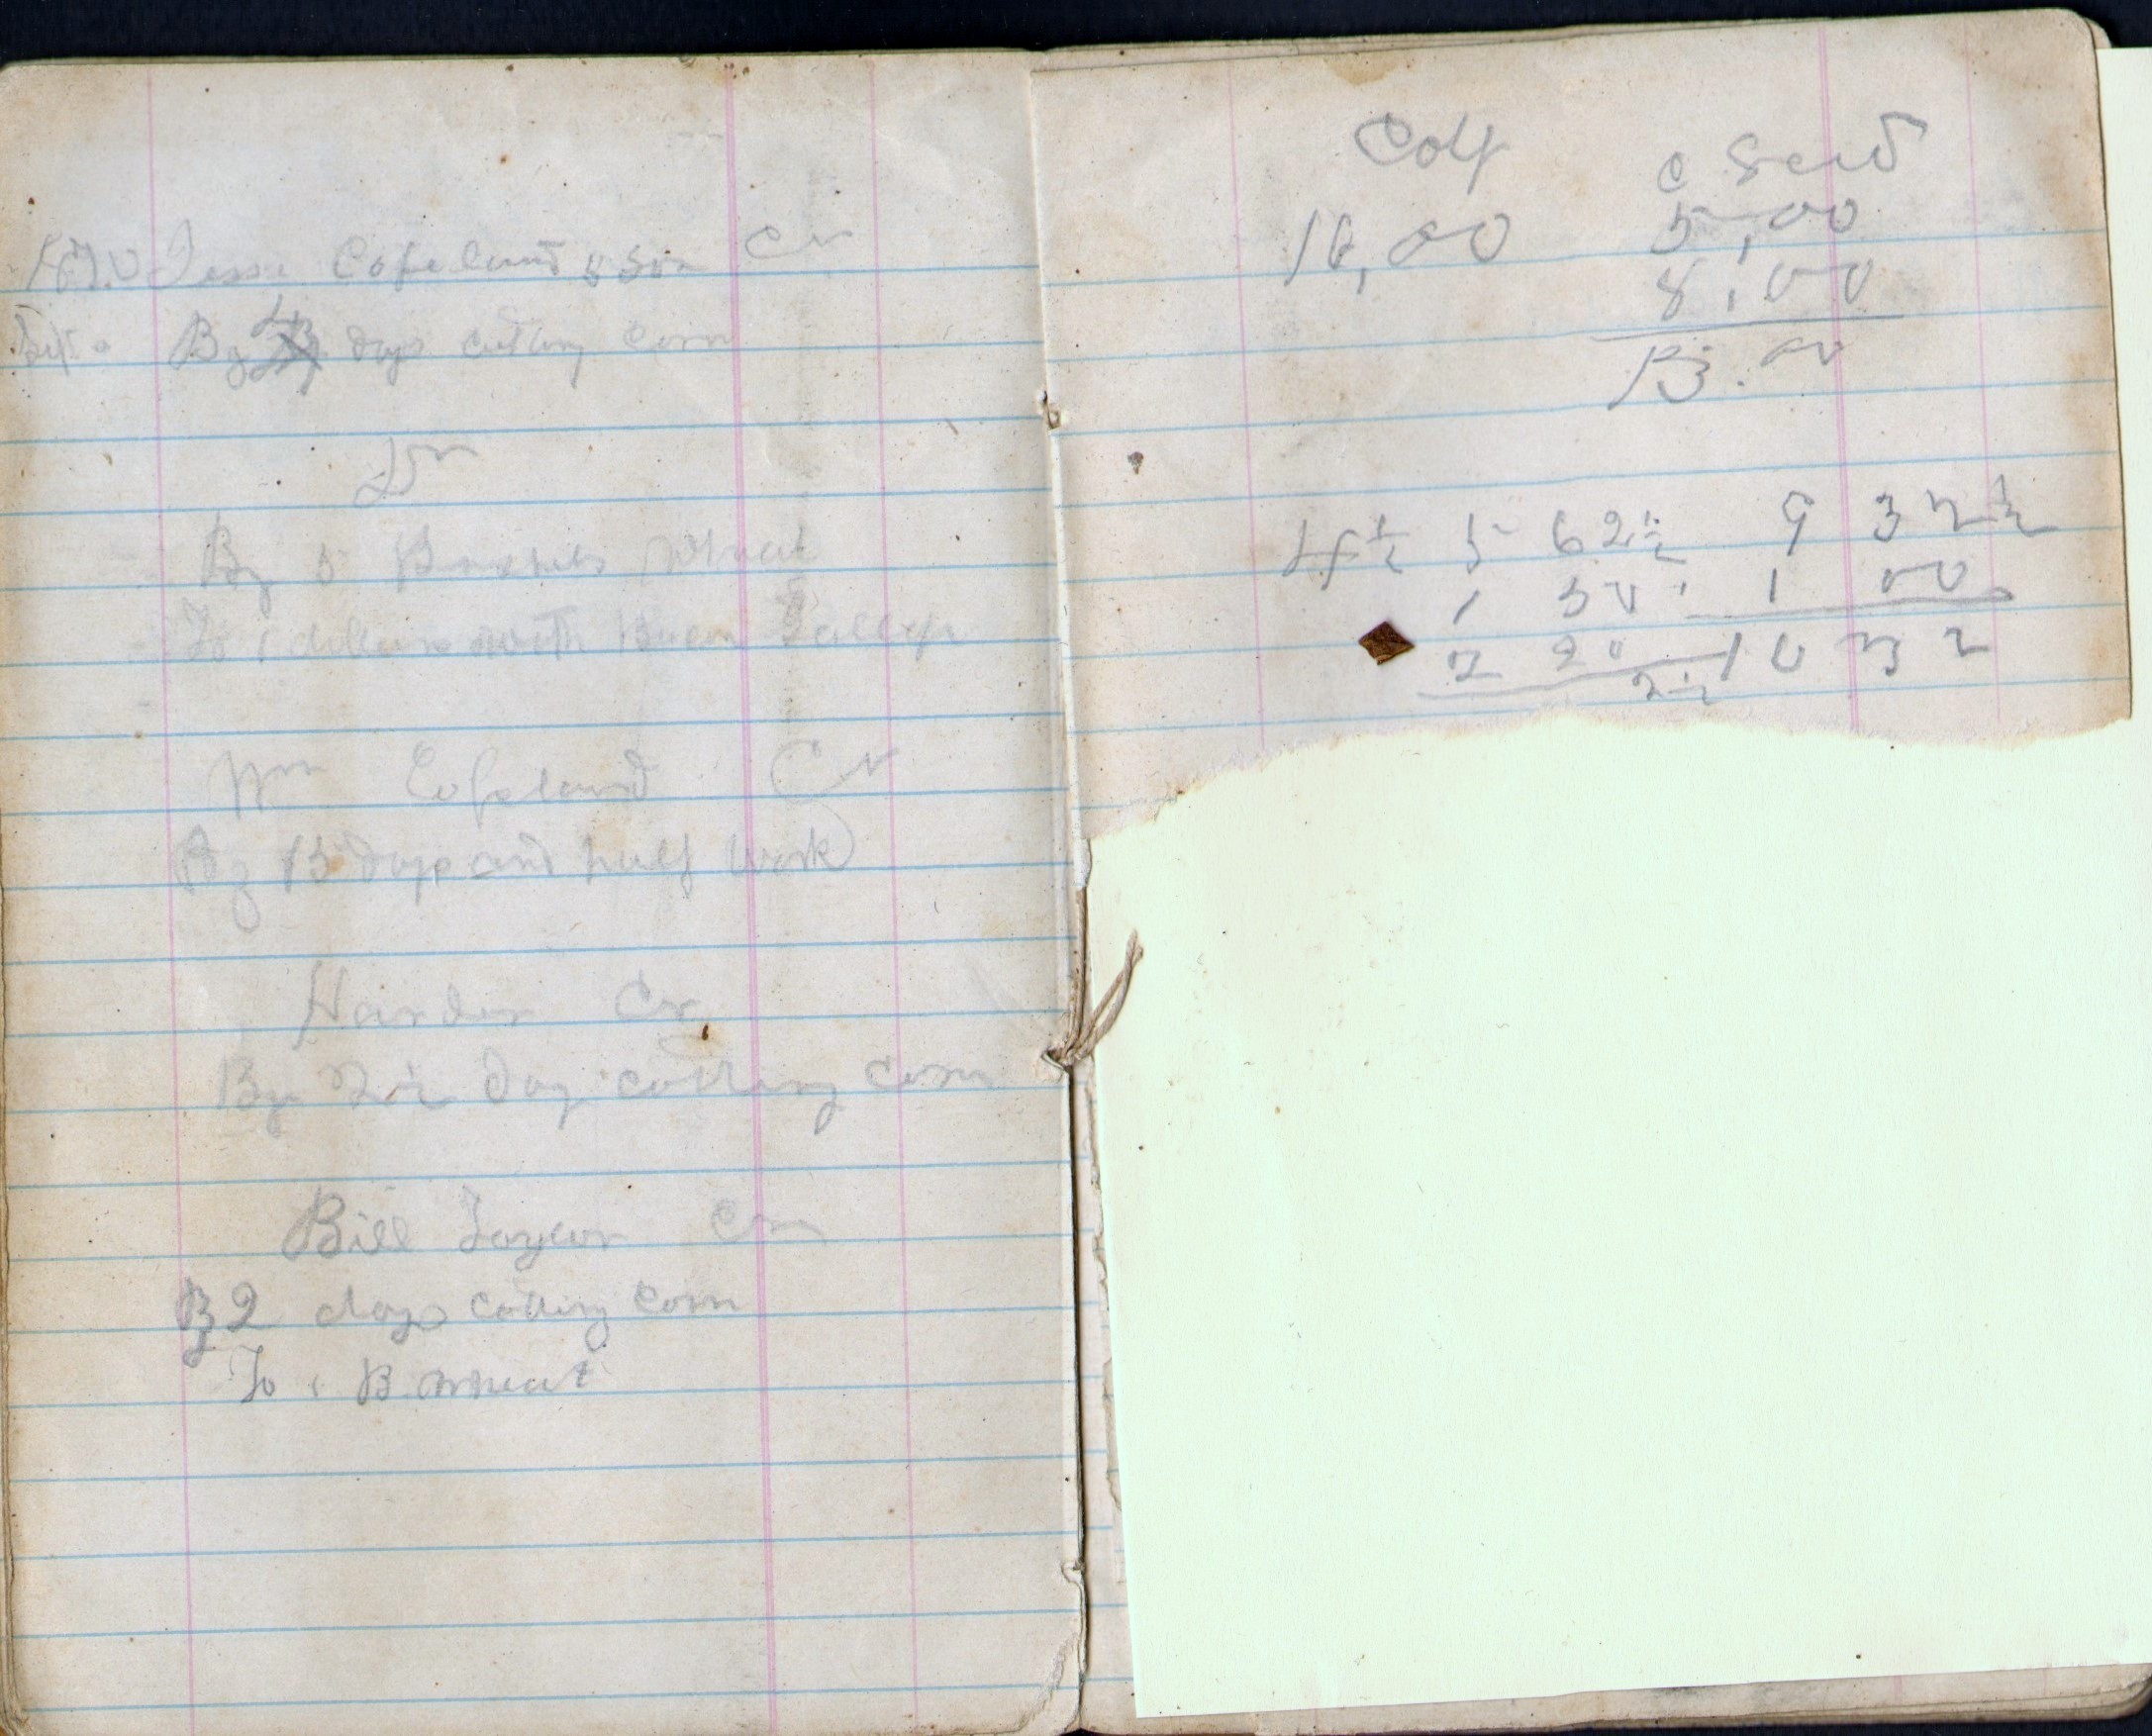 Jesse Copeland & Son Cr
By 4 days cutting corn
Dr
By 5 Bushels Wheat
To 1 dollars worth
Wm Copeland Cr
By 13 days and half Work
Harden Cr
By 2½ day cutting corn
Bill Taylor Cr
By 2 days cutting corn
To 1 B. wheat
Colf
16,00
C Seed
5,00
8,00
13.00
4½ 5 62½ 9 37½
1 50 1 00
10 37